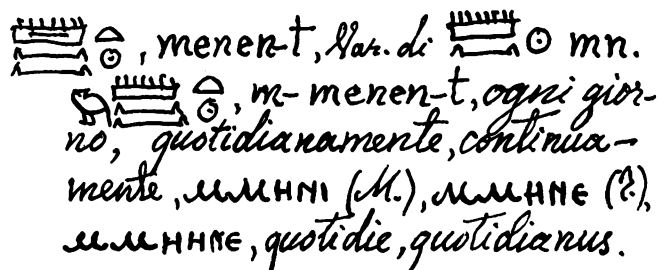 𓏠𓈖𓈖𓏏𓇳, menen-t, Var. di 𓏠𓈖𓇳 mn.
𓅓𓏠𓈖𓈖𓏏𓇳, m-menen-t, ogni gior-
no, quotidianamente, continua-
mente, ⲙⲙⲏⲛⲓ (M.), ⲙⲙⲏⲛⲉ (T.),
ⲙⲙⲏⲏⲛⲉ, quotidie, quotidianus.